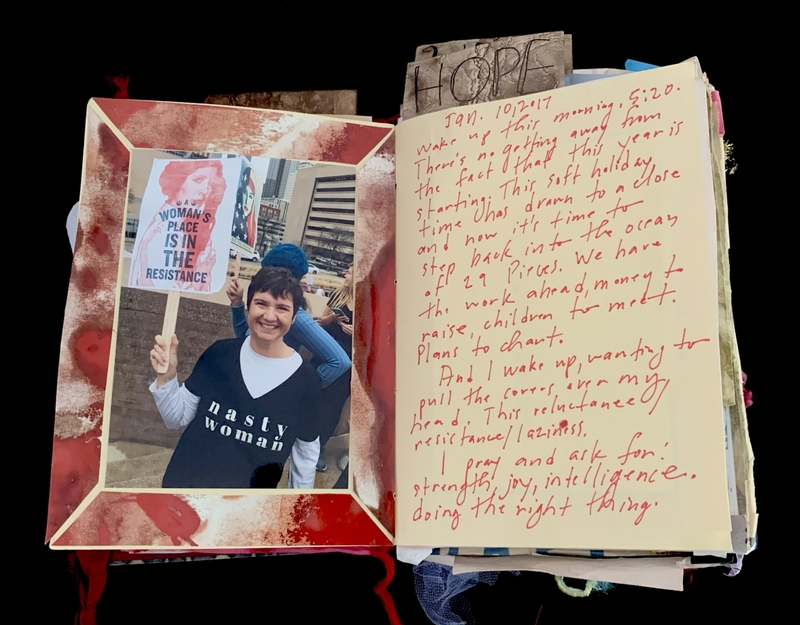 A WOMAN'S
PLACE
IS IN
THE
RESISTANCE
nasty
woman
HOPE
Jan. 10, 2017
wake up this morning, 5:20.
There's no getting away from
the fact that this year is
starting. This soft holiday
time has drawn to a close
and now it's time to
step back into the ocean
of 29 Pieces. We have
the work ahead, money to
raise, children to meet.
Plans to chart.
And I wake up, wanting to
pull the covers over my
head. This reluctance/
resistance/laziness.
I pray and ask for:
strength, joy, intelligence.
doing the right thing.